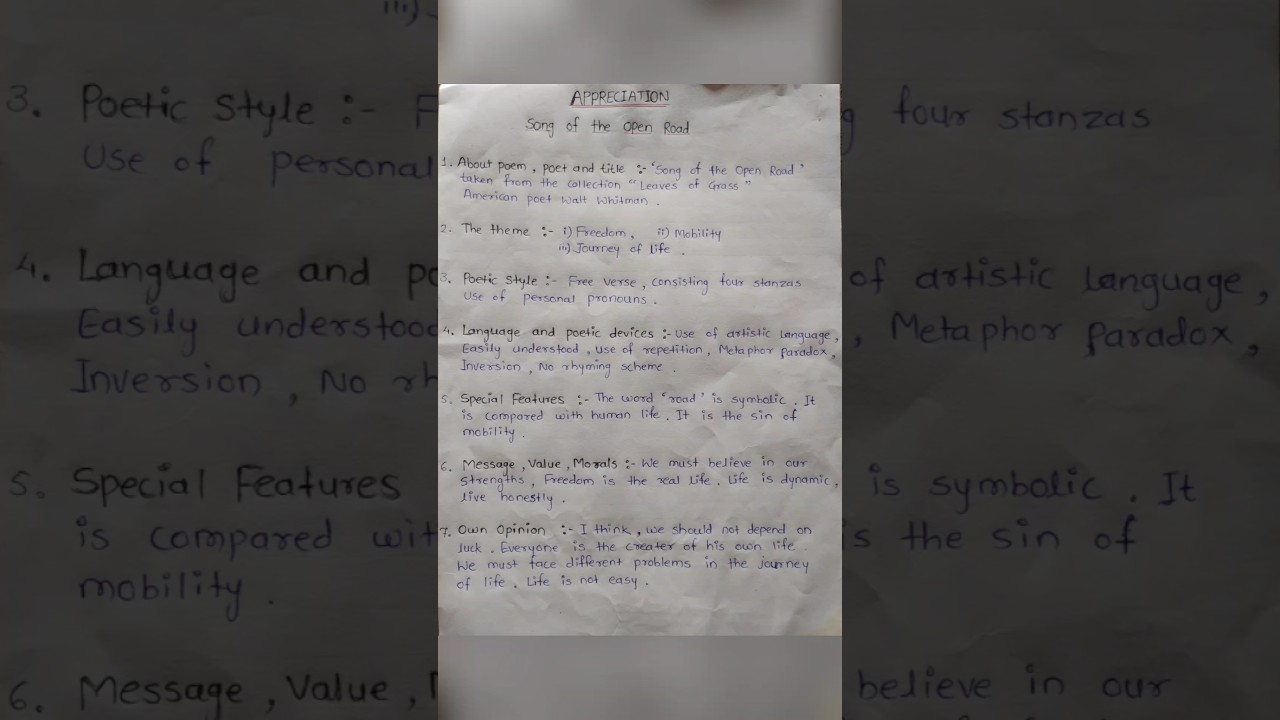 APPRECIATION
Song of the Open Road
1. About poem, poet and title :- 'Song of the Open Road'
taken from the collection "Leaves of Grass"
American poet Walt Whitman.
2. The theme :- i) Freedom, ii) Mobility
iii) Journey of Life.
3. Poetic Style :- Free verse, consisting four stanzas
Use of personal pronouns.
4. Language and poetic devices :- Use of artistic language,
Easily understood, use of repetition, Metaphor paradox,
Inversion, No rhyming scheme.
5. Special Features :- The word 'road' is symbolic. It
is compared with human life. It is the sin of
mobility.
6. Message, Value, Morals :- We must believe in our
strengths, Freedom is the real life. Life is dynamic,
live honestly.
7. Own Opinion :- I think, we should not depend on
luck. Everyone is the creater of his own life.
We must face different problems in the journey
of life. Life is not easy.